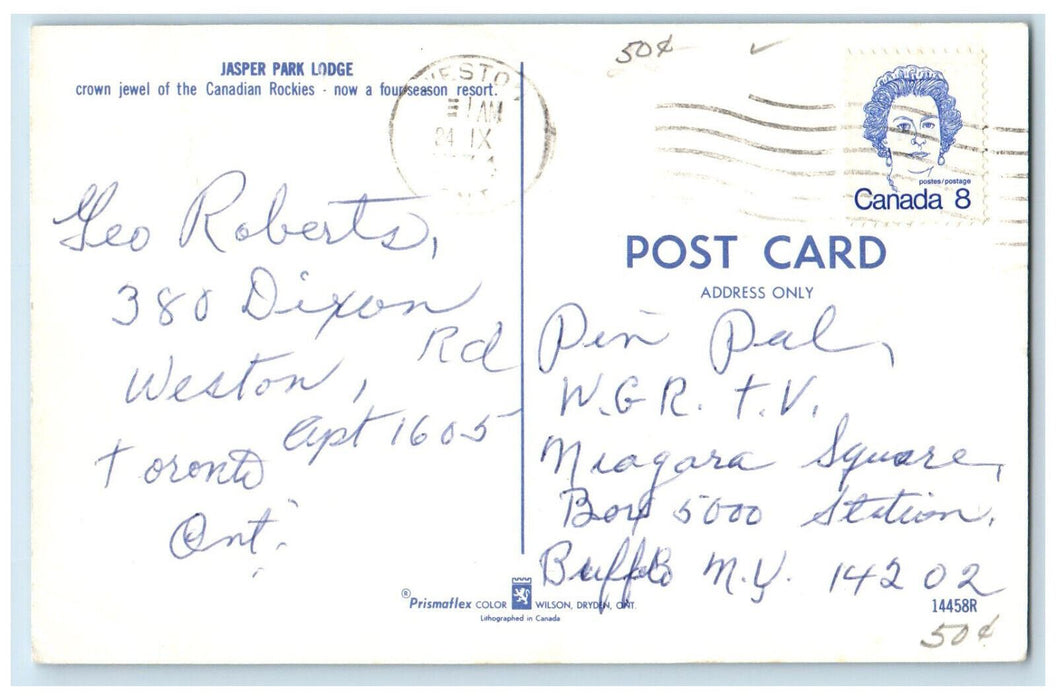 JASPER PARK LODGE
crown jewel of the Canadian Rockies - now a four season resort.
WESTO
AM
IX
50¢
postes/postage
Canada 8
Geo Roberts,
380 Dixon
Rd
Weston,
Apt 1605
Toronto
Ont.
POST CARD
ADDRESS ONLY
Pin Pal,
W.G.R. T.V.
Niagara Square,
Box 5000 Station,
Buffalo N.Y. 14202
® Prismaflex COLOR WILSON, DRYDEN, ONT.
Lithographed in Canada
14458R
50¢